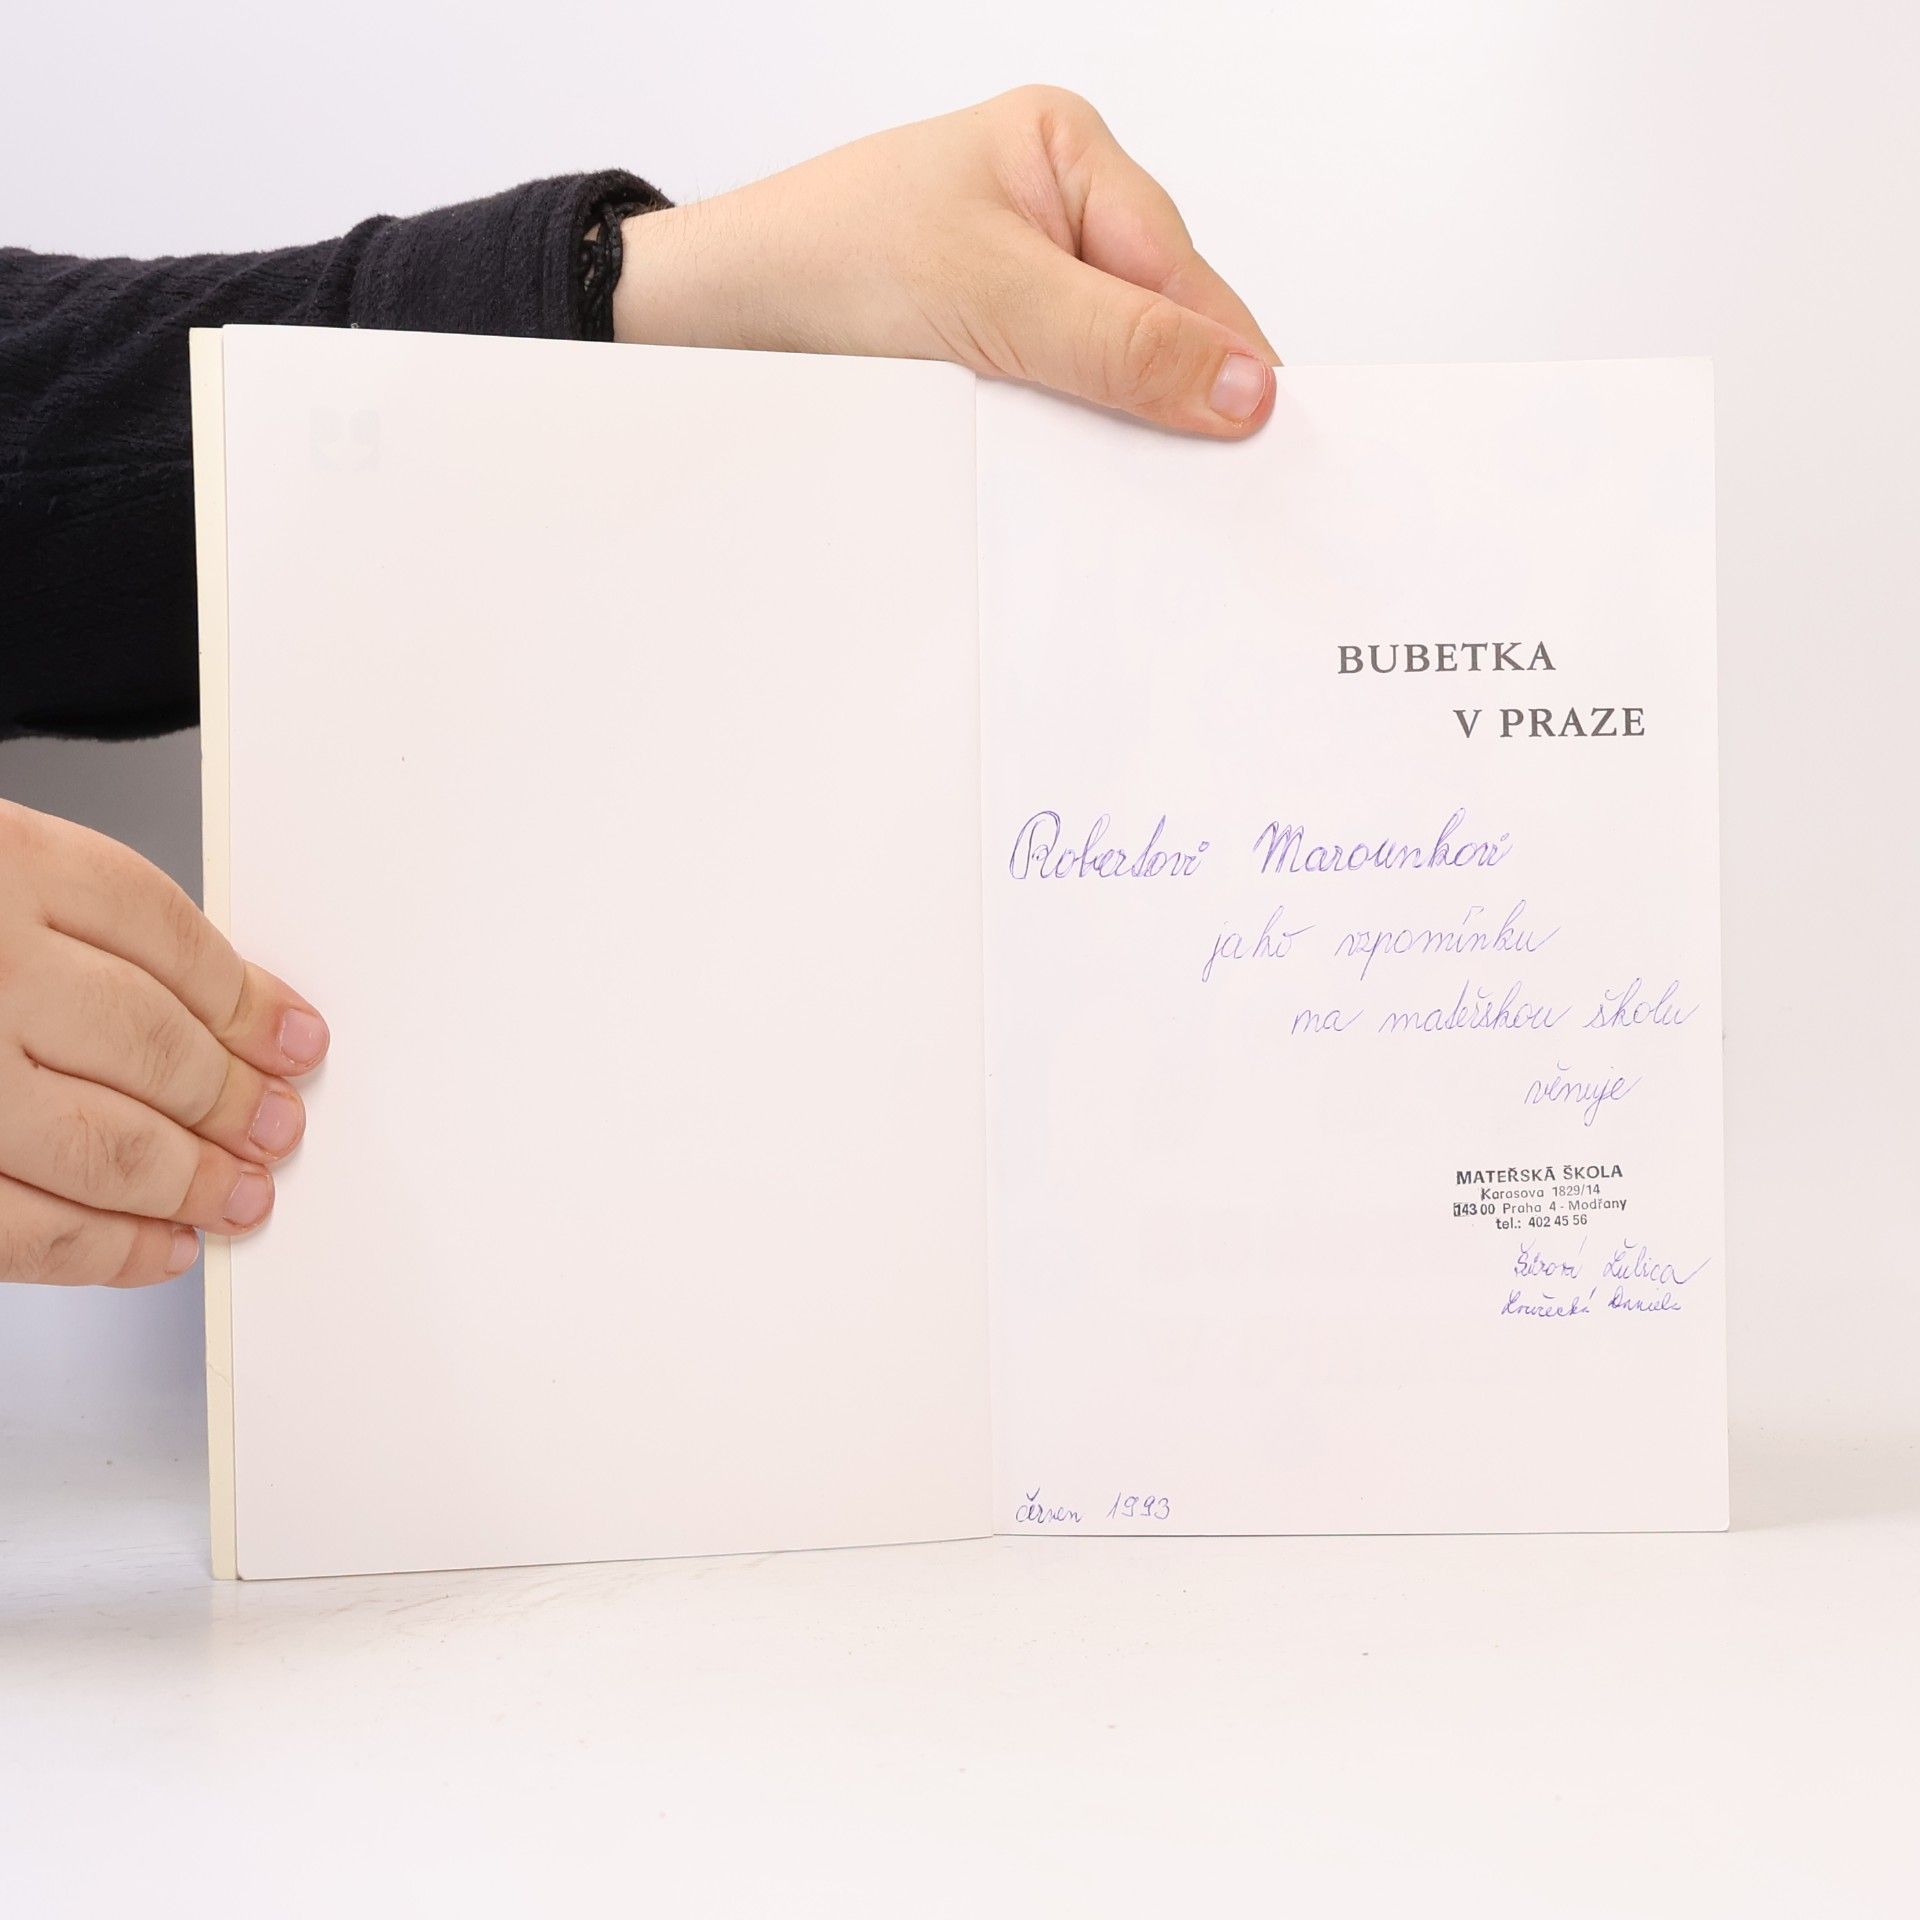 BUBETKA
V PRAZE
Robertovi Marounkovi
jako vzpomínku
na mateřskou školu
věnuje
MATEŘSKÁ ŠKOLA
Karasova 1829/14
143 00 Praha 4 - Modřany
tel.: 402 45 56
červen 1993